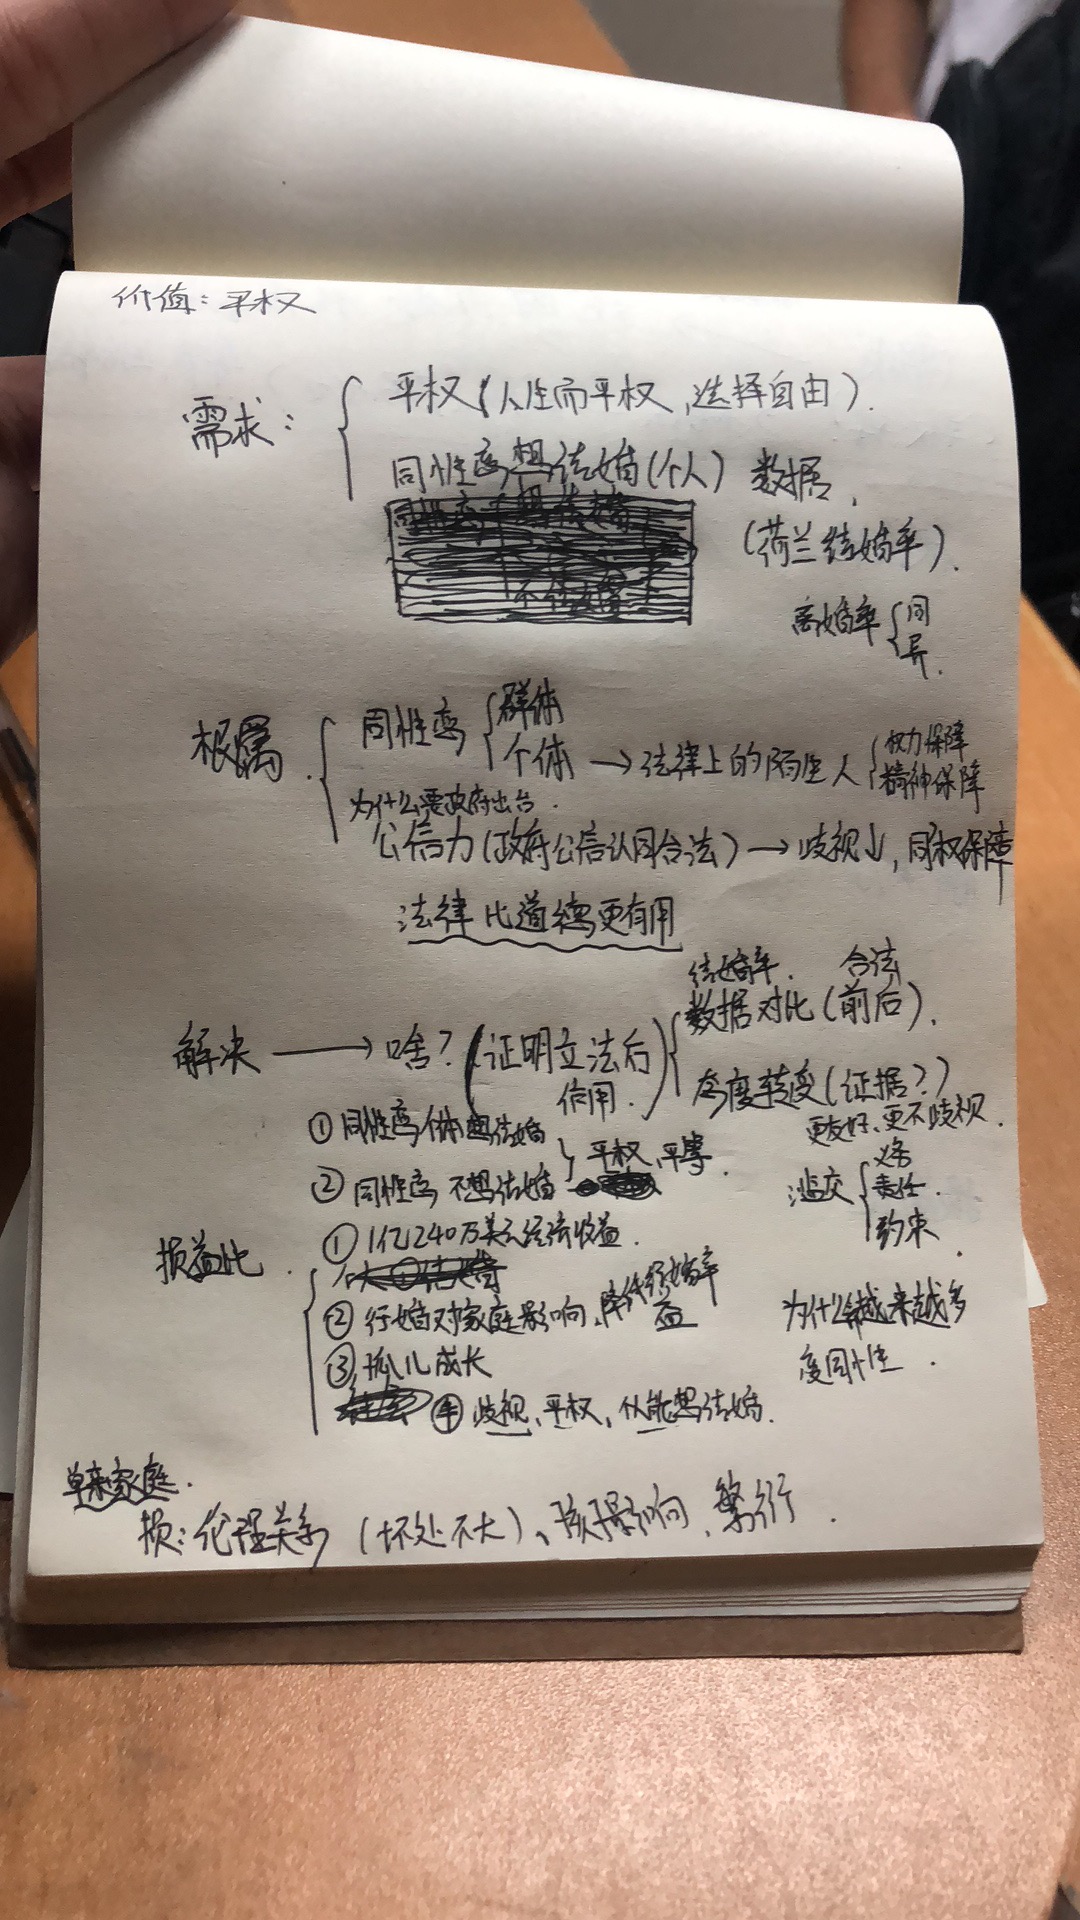 价值：平权
需求： 平权（人生而平权，选择自由）.
同性恋想结婚(个人) 数据.
(荷兰结婚率).
离婚率 同
异.
根属. 同性恋 群体
个体 → 法律上的陌生人 权力保障
精神保障
为什么要政府出台.
公信力(政府公信认同合法) → 歧视↓，同权保障
法律比道德更有用
结婚率. 合法
解决 → 啥？(证明立法后作用.) 数据对比(前后).
态度转变(证据？)
更友好、更不歧视.
① 同性恋 想结婚
② 同性恋 不想结婚 平权、平等.
滥交 义务
责任.
约束.
损益比. ① 1亿240万美元经济收益.
② 行婚对家庭影响、降低 婚率
③ 孤儿成长
④ 歧视、平权、 能想结婚.
为什么 越来越多
度同性.
单亲家庭.
损：伦理关系 (坏处不大)、孩子影响、繁衍.